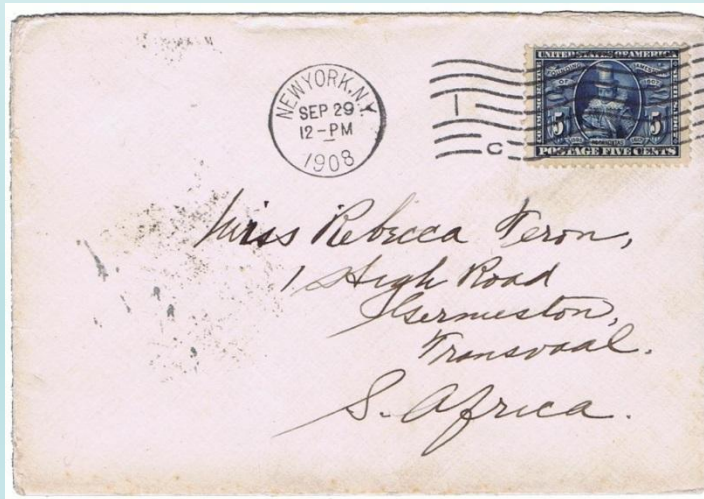 NEW YORK, N.Y.
SEP 29
12-PM
1908
1
C
UNITED STATES OF AMERICA
FOUNDING
OF
5 5
POSTAGE FIVE CENTS
Miss Rebecca Feron,
1 High Road
Germiston,
Transvaal.
S. Africa.